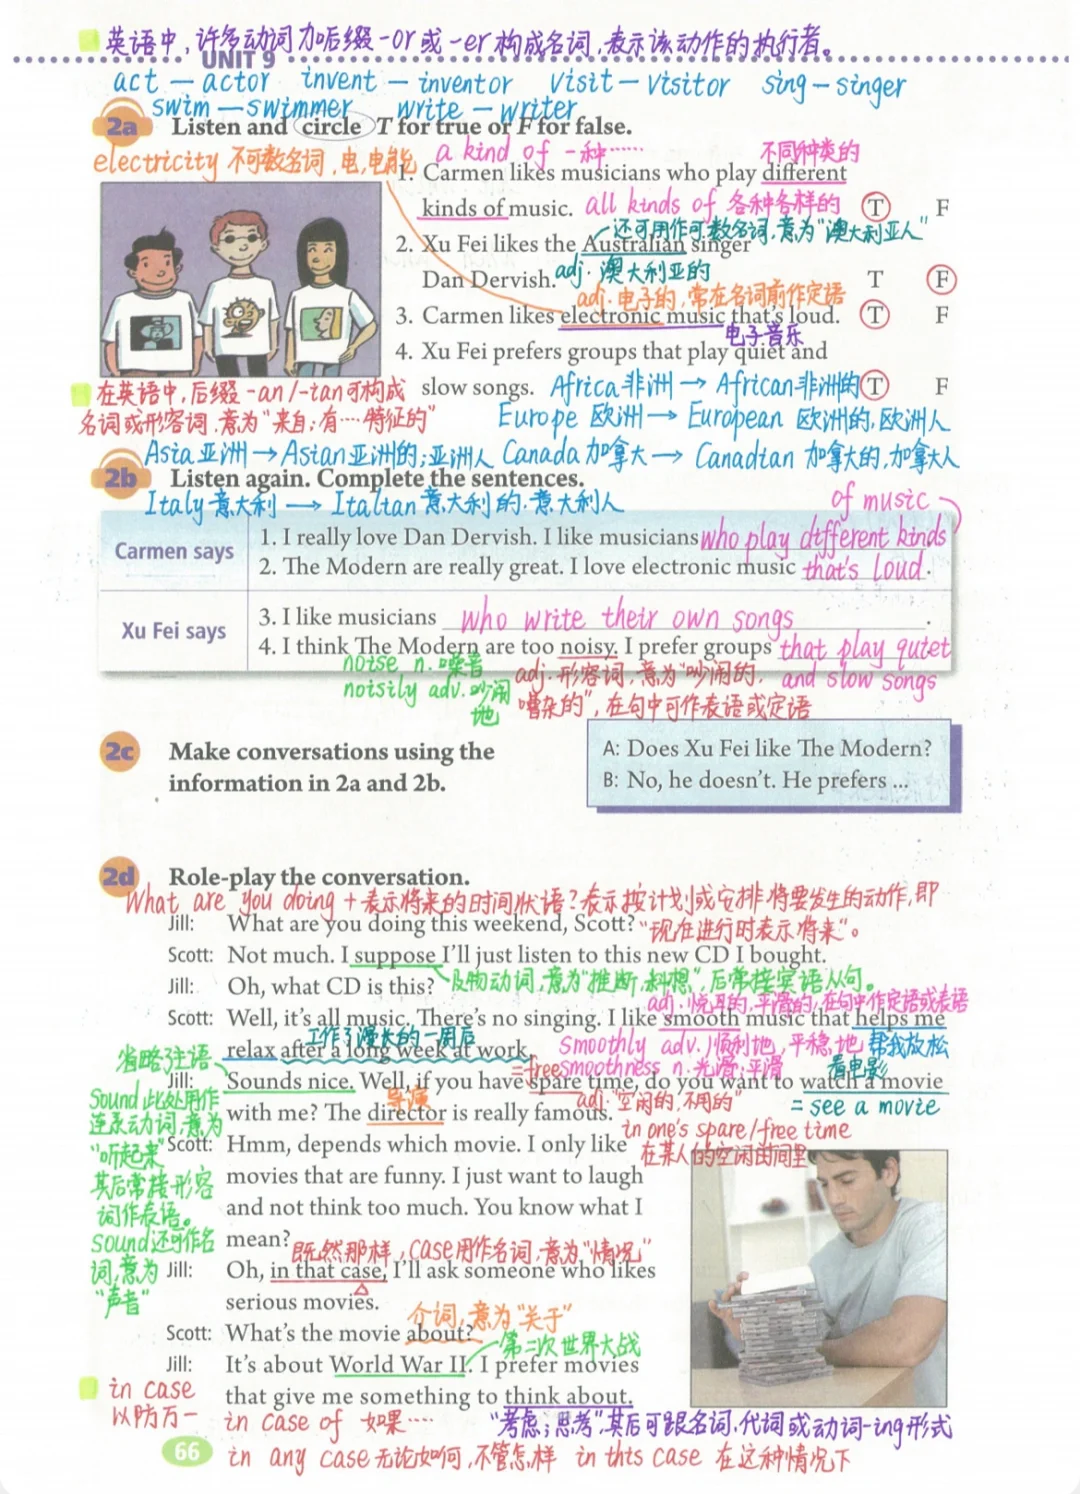 英语中,许多动词加后缀-or或-er构成名词,表示该动作的执行者。
UNIT 9
act — actor invent — inventor visit — visitor sing — singer
swim — swimmer write — writer
2a Listen and circle T for true or F for false.
electricity 不可数名词,电,电能
a kind of 一种…… 不同种类的
1. Carmen likes musicians who play different
kinds of music. all kinds of 各种各样的 T F
还可用作可数名词,意为"澳大利亚人"
2. Xu Fei likes the Australian singer
Dan Dervish. adj. 澳大利亚的 T F
adj. 电子的,常在名词前作定语
3. Carmen likes electronic music that's loud. T F
电子音乐
4. Xu Fei prefers groups that play quiet and
slow songs. Africa非洲→African非洲的 T F
在英语中,后缀-an/-tan可构成
名词或形容词,意为"来自;有…特征的"
Europe 欧洲→European 欧洲的,欧洲人
Asia亚洲→Asian亚洲的;亚洲人 Canada加拿大→Canadian 加拿大的,加拿大人
2b Listen again. Complete the sentences.
Italy意大利→Italian意大利的,意大利人
of music
Carmen says
1. I really love Dan Dervish. I like musicians who play different kinds
2. The Modern are really great. I love electronic music that's loud.
Xu Fei says
3. I like musicians who write their own songs.
4. I think The Modern are too noisy. I prefer groups that play quiet
and slow songs
noise n. 噪音
noisily adv. 吵闹地
adj. 形容词,意为"吵闹的,
嘈杂的",在句中可作表语或定语
2c Make conversations using the
information in 2a and 2b.
A: Does Xu Fei like The Modern?
B: No, he doesn't. He prefers ...
2d Role-play the conversation.
What are you doing+表示将来的时间状语?表示按计划或安排将要发生的动作,即
Jill: What are you doing this weekend, Scott? "现在进行时表示将来"。
Scott: Not much. I suppose I'll just listen to this new CD I bought.
Jill: Oh, what CD is this? 及物动词,意为"推断,料想",后常接宾语从句。
adj. 悦耳的,平滑的,在句中作定语或表语
Scott: Well, it's all music. There's no singing. I like smooth music that helps me
工作了漫长的一周后
relax after a long week at work. smoothly adv.顺利地,平稳地 帮我放松
省略了主语
=free smoothness n.光滑;平滑 看电影
Jill: Sounds nice. Well, if you have spare time, do you want to watch a movie
导演 adj."空闲的,不用的" = see a movie
with me? The director is really famous.
in one's spare/free time
在某人的空闲时间里
Sound此处用作
连系动词,意为
"听起来"
其后常接形容
词作表语。
sound还可作名
词,意为
"声音"
Scott: Hmm, depends which movie. I only like
movies that are funny. I just want to laugh
and not think too much. You know what I
mean?
既然那样,case用作名词,意为"情况"
Jill: Oh, in that case, I'll ask someone who likes
serious movies.
介词,意为"关于"
Scott: What's the movie about?
第二次世界大战
Jill: It's about World War II. I prefer movies
that give me something to think about.
in case
以防万一
in case of 如果…… "考虑;思考",其后可跟名词、代词或动词-ing形式
66
in any case无论如何,不管怎样 in this case 在这种情况下